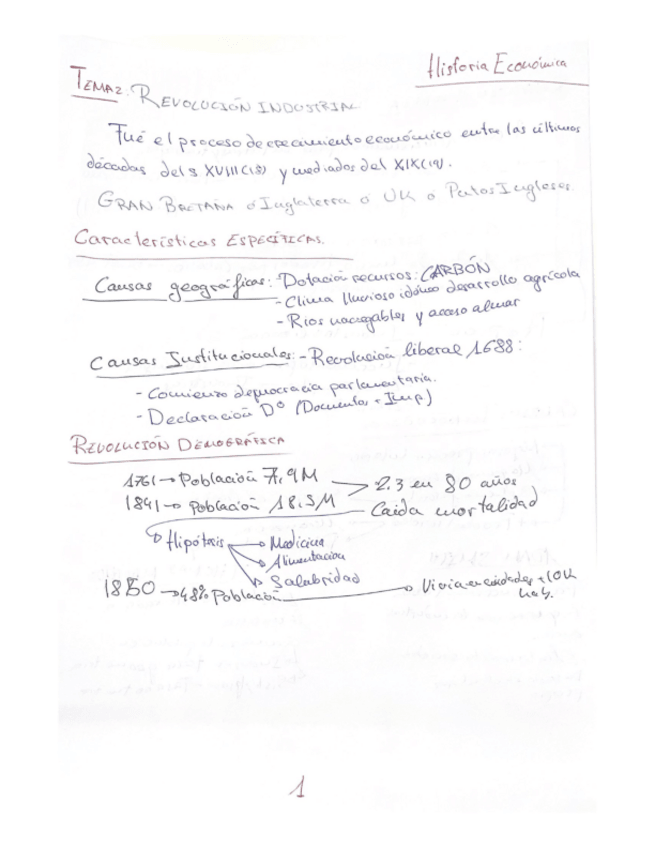 Historia Económica
TEMA 2: REVOLUCIÓN INDUSTRIAL
Fué el proceso de crecimiento económico entre las últimas
décadas del s XVIII (18) y mediados del XIX (19).
GRAN BRETAÑA o Inglaterra o UK o Países Ingleses.
Características ESPECÍFICAS.
Causas geográficas: Dotación recursos: CARBÓN
- Clima lluvioso idóneo desarrollo agrícola
- Ríos navegables y acceso al mar
Causas Institucionales: - Revolución liberal 1688:
- Comienzo democracia parlamentaria.
- Declaración Dº (Documento + Imp)
REVOLUCIÓN DEMOGRÁFICA
1761 → Población 7,9M
2.3 en 80 años
1841 → Población 18,5M
Caida mortalidad
Hipótesis → Medicina
→ Alimentacion
→ Salubridad
1850 → 48% Población → Vivia en ciudades + 10K
hab.
1